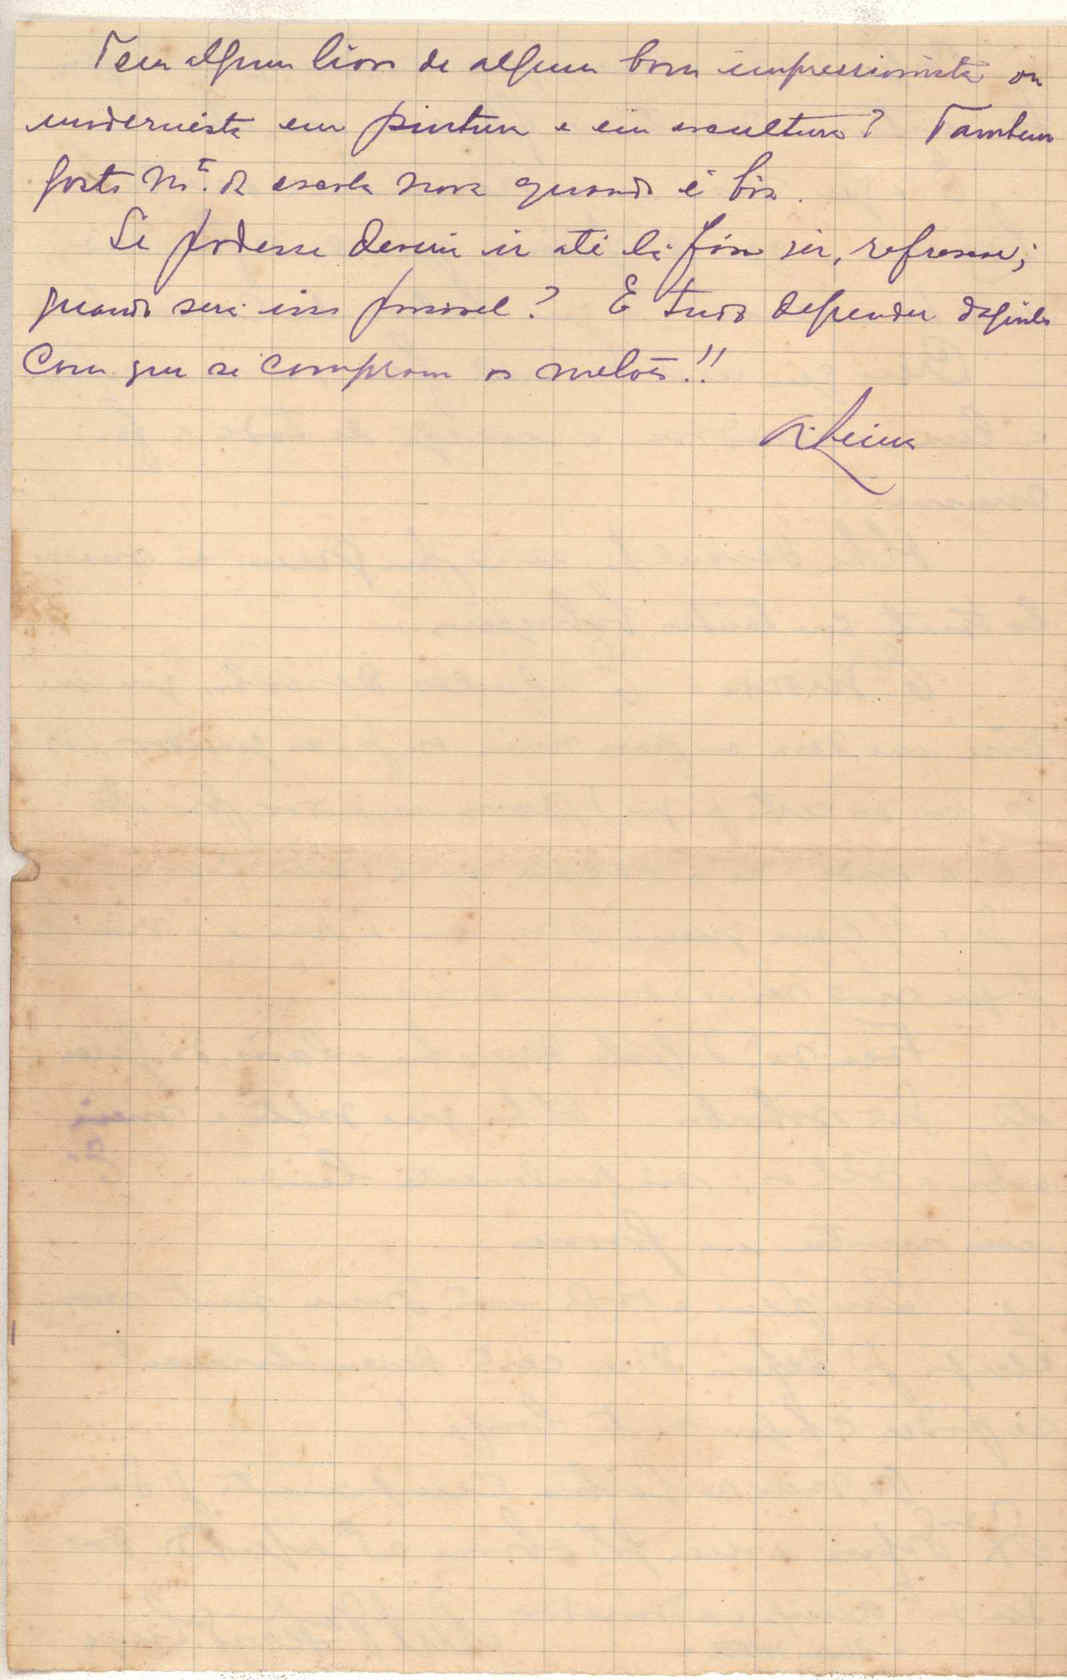 Tem algum livro de algum bom impressionista ou
modernista em pintura e em escultura? Tambem
gosto mto. da escola nova quando é boa.
Se podesse deveria ir até lá fóra ver, refrescar;
quando será isso possivel? E tudo depender daquilo
com que se compram os melões!!